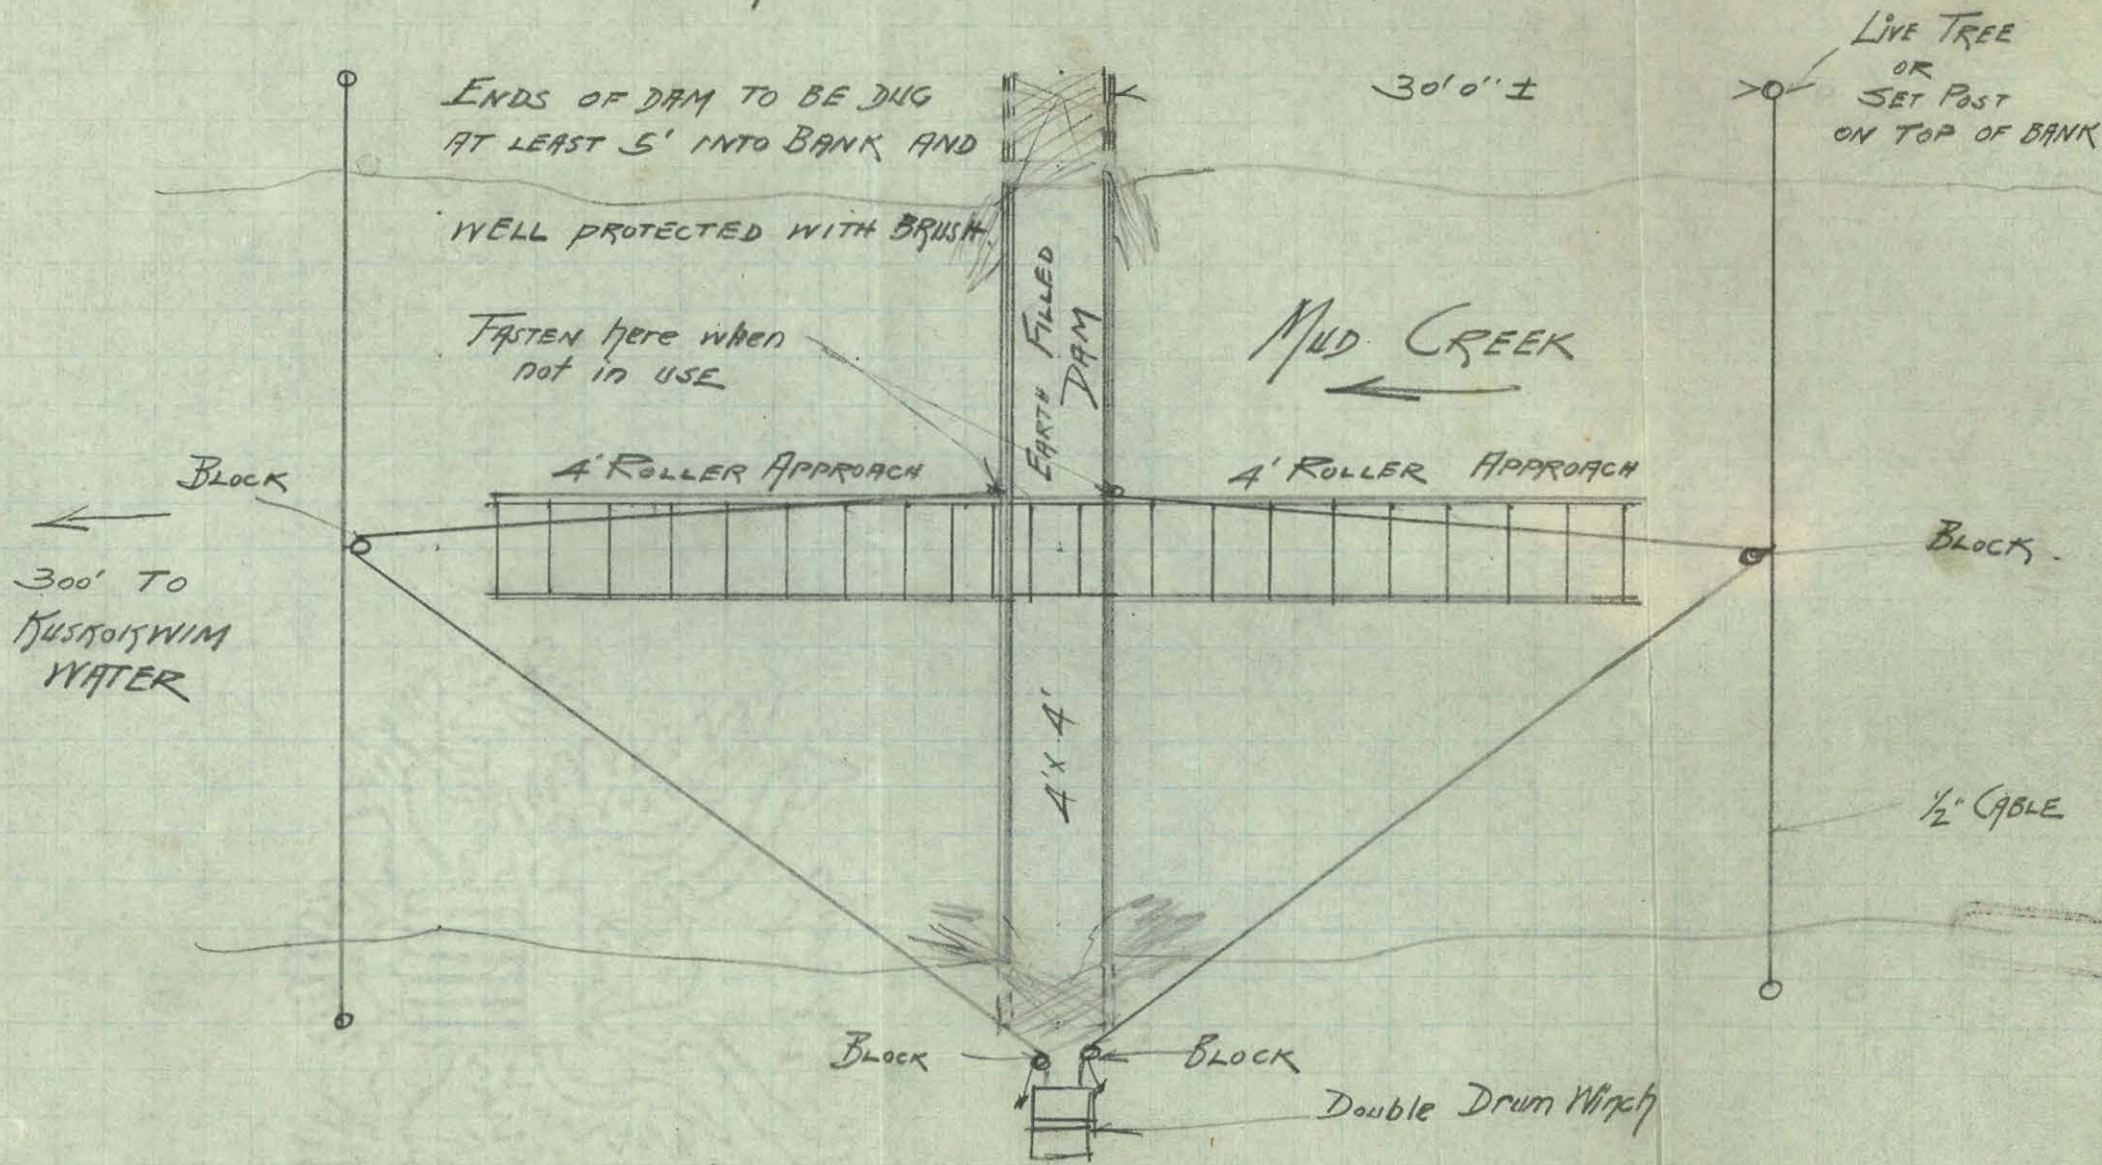 ENDS OF DAM TO BE DUG
AT LEAST 5' INTO BANK AND
WELL PROTECTED WITH BRUSH.
30'0" ±
LIVE TREE
OR
SET POST
ON TOP OF BANK
FASTEN here when
not in USE
EARTH FILLED
DAM
MUD CREEK
BLOCK
4' ROLLER APPROACH
4' ROLLER APPROACH
BLOCK.
300' TO
KUSKOKWIM
WATER
4' x 4'
1/2" CABLE
BLOCK
BLOCK
Double Drum Winch